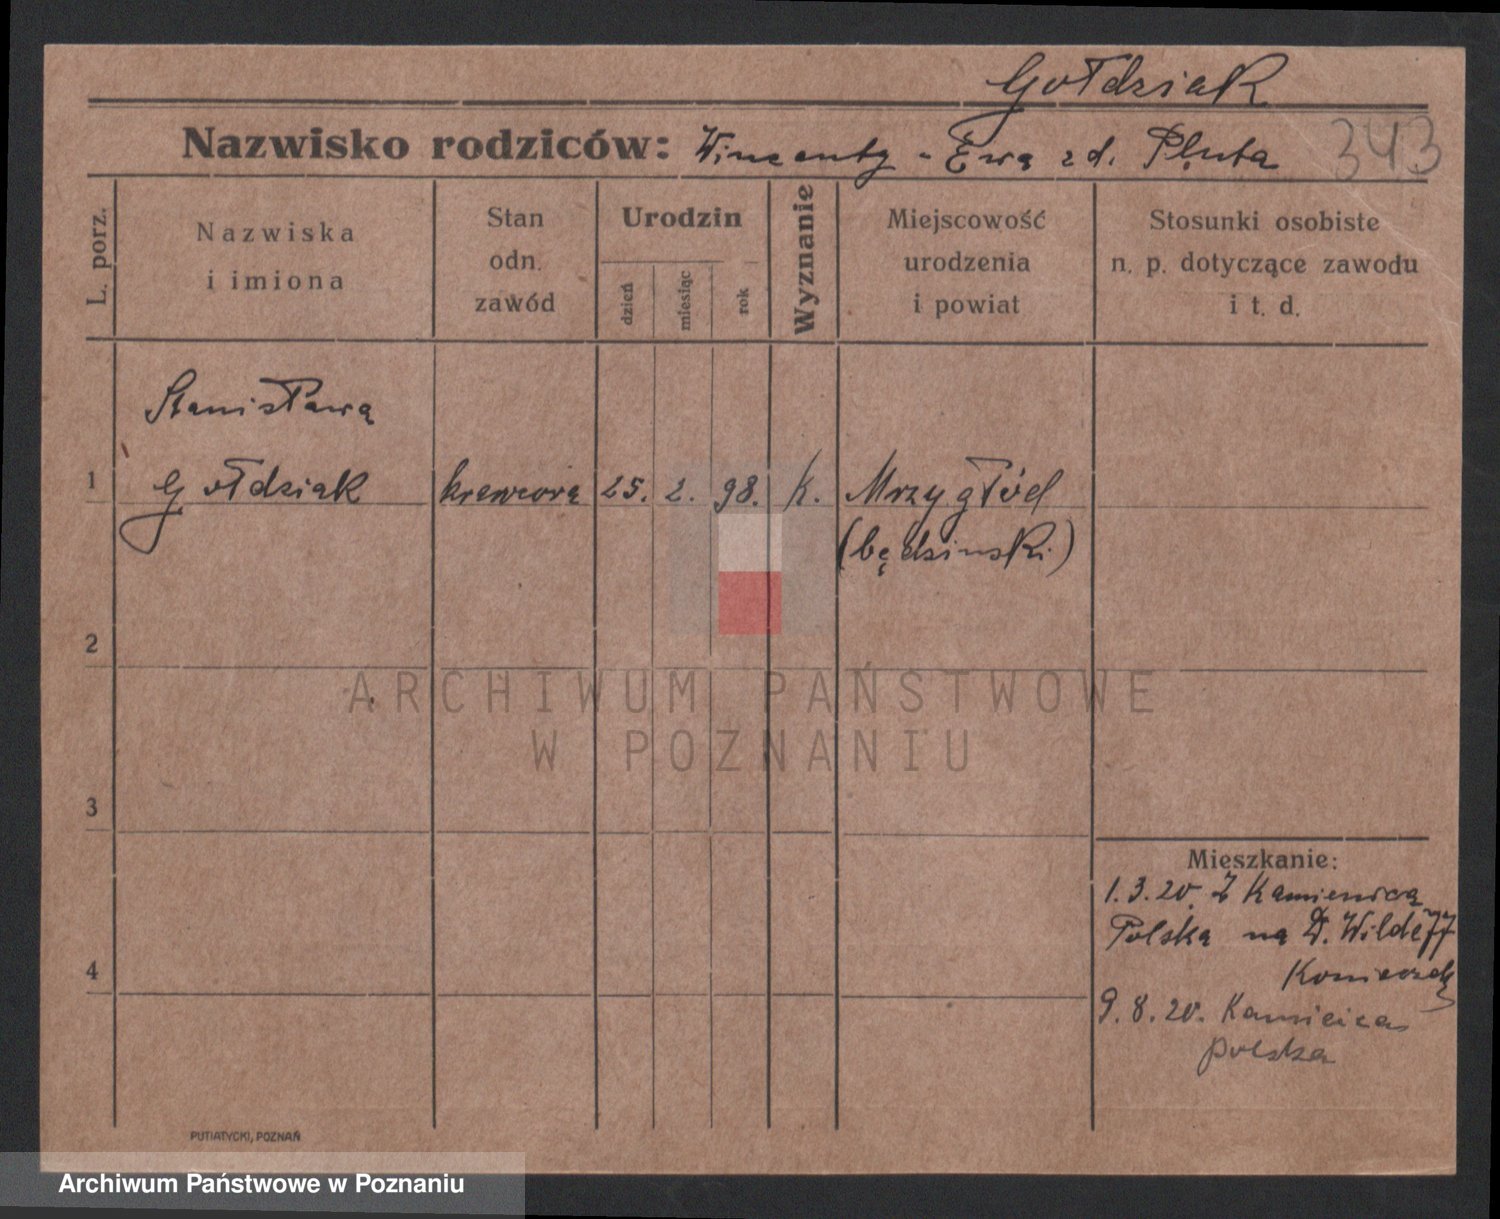 Gołdziak
Nazwisko rodziców: Wincenty - Ewa z d. Pluta 343
L. porz.
Nazwiska
i imiona
Stan
odn.
zawód
Urodzin
dzień
miesiąc
rok
Wyznanie
Miejscowość
urodzenia
i powiat
Stosunki osobiste
n. p. dotyczące zawodu
i t. d.
Stanisława
1 Gołdziak krawcowa 25. 2. 98. k. Mrzygłód
(będzinski)
2
ARCHIWUM PAŃSTWOWE
W POZNANIU
3
Mieszkanie:
1.3.20. Z Kamienica
Polska na D. Wildę 77
4
9.8.20. Kamienica
polska
PUTIATYCKI, POZNAŃ
Archiwum Państwowe w Poznaniu